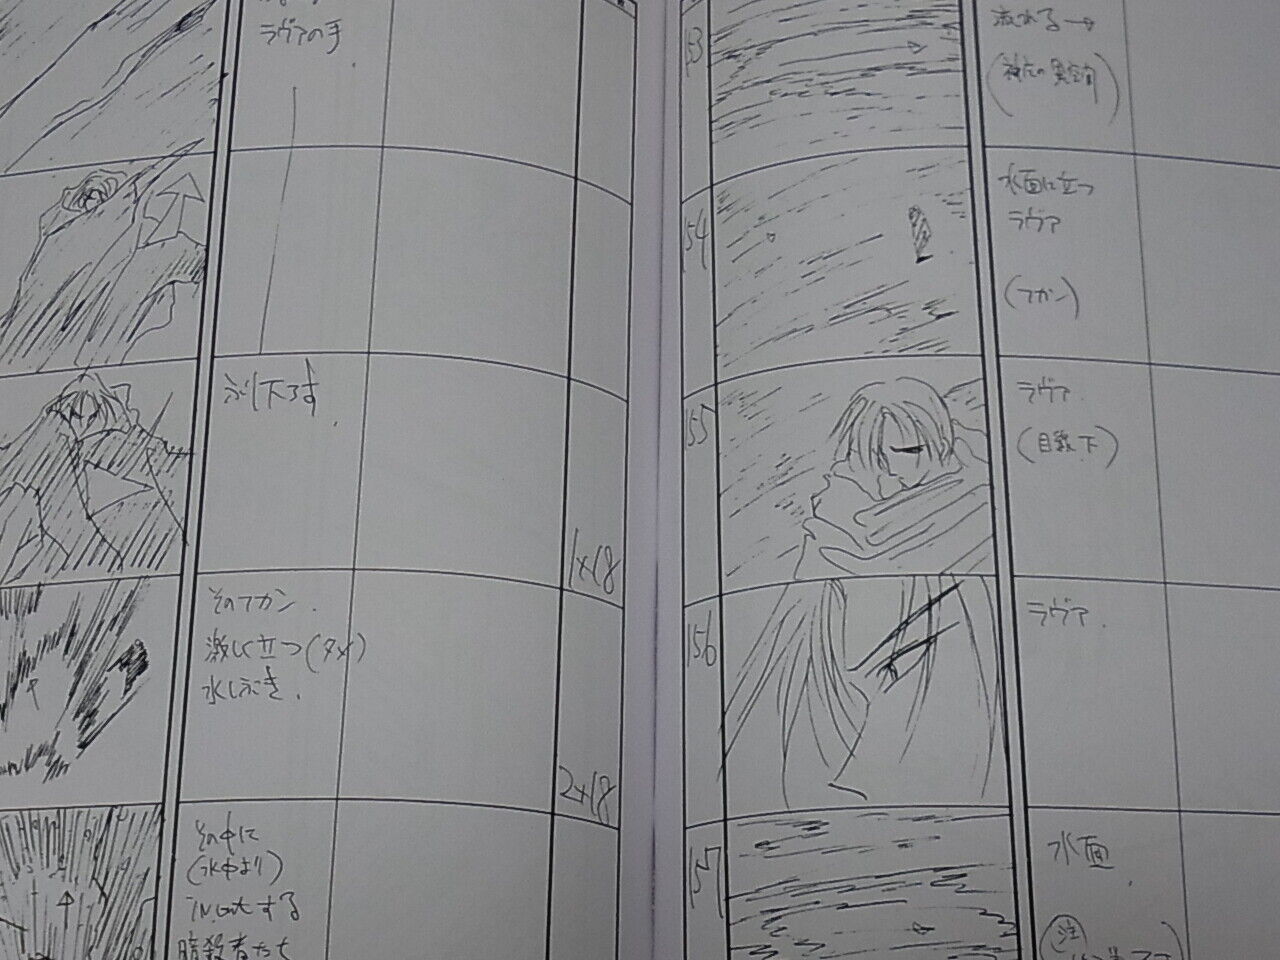 ラヴァの手
ふり下ろす
1+18
そのフカン.
激しく立つ(タメ)
水しぶき.
2+18
その中に
(水中より)
in outする
暗殺者たち
153
流れる→
154
水面に立つ
ラヴァ
(フカン)
155
ラヴァ
(目線下)
156
ラヴァ.
157
水面.
注